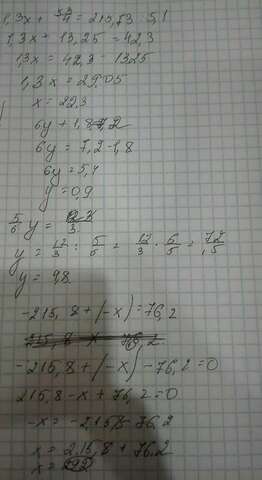 1,3x + = 215,73 : 5,1
1,3x + 13,25 = 42,3
1,3x = 42,3 - 1325
1,3 x = 29.05
x = 22,3
6y + 1,8
6y = 7,2-1,8
6y = 5,4
y = 0,9
5/6 y =
y = 12/3 : 5/6 = 12/3 · 6/5 = 72/15
y = 9,8
-215,8 + (-x) = 76,2
-215,8 + (-x) - 76,2 = 0
215,8 - x + 76,2 = 0
-x = -215,8 - 76,2
x = 215,8 + 76,2
x = 292